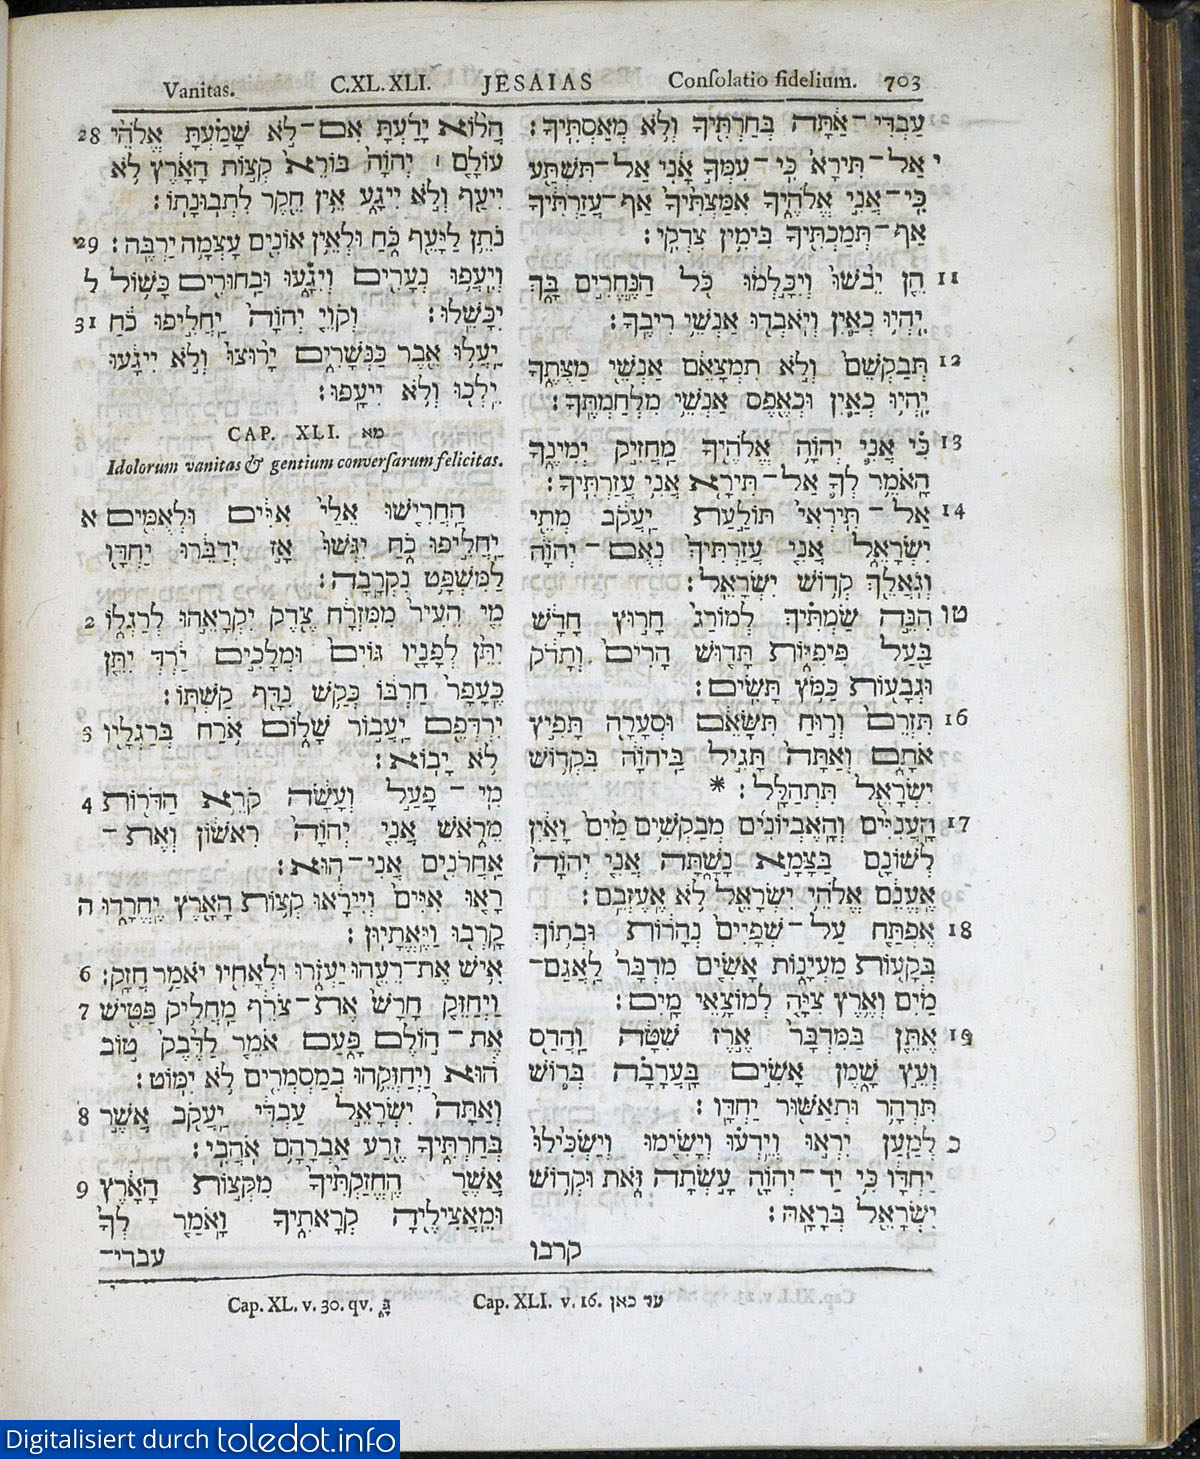 Vanitas. C.XL.XLI. JESAIAS Conſolatio fidelium. 703
הֲלוֹא יָדַעְתָּ אִם־לֹא שָׁמַעְתָּ אֱלֹהֵי 28
עוֹלָם ׀ יְהוָֹה בּוֹרֵא קְצוֹת הָאָרֶץ לֹא
יִיעַף וְלֹא יִיגָע אֵין חֵקֶר לִתְבוּנָתוֹ׃
נֹתֵן לַיָּעֵף כֹּחַ וּלְאֵין אוֹנִים עָצְמָה יַרְבֶּה׃ 29
וְיִעֲפוּ נְעָרִים וְיִגָעוּ וּבַחוּרִים כָּשׁוֹל ל
יִכָּשֵׁלוּ׃ וְקוֹיֵ יְהוָֹה יַחֲלִיפוּ כֹחַ 31
יַעֲלוּ אֵבֶר כַּנְּשָׁרִים יָרוּצוּ וְלֹא יִיגָעוּ
יֵלְכוּ וְלֹא יִיעָפוּ׃
CAP. XLI. מא
Idolorum vanitas & gentium converſarum felicitas.
הַחֲרִישׁוּ אֵלַי אִיִּים וּלְאֻמִּים א
יַחֲלִיפוּ כֹחַ יִגְּשׁוּ אָז יְדַבֵּרוּ יַחְדָּו
לַמִּשְׁפָּט נִקְרָבָה׃
מִי הֵעִיר מִמִּזְרָח צֶדֶק יִקְרָאֵהוּ לְרַגְלוֹ 2
יִתֵּן לְפָנָיו גּוֹיִם וּמְלָכִים יַרְדְּ יִתֵּן
כֶּעָפָר חַרְבּוֹ כְּקַשׁ נִדָּף קַשְׁתּוֹ׃
יִרְדְּפֵם יַעֲבוֹר שָׁלוֹם אֹרַח בְּרַגְלָיו 3
לֹא יָבוֹא׃
מִי־פָעַל וְעָשָׂה קֹרֵא הַדֹּרוֹת 4
מֵרֹאשׁ אֲנִי יְהוָֹה רִאשׁוֹן וְאֶת־
אַחֲרֹנִים אֲנִי־הוּא׃
רָאוּ אִיִּים וְיִירָאוּ קְצוֹת הָאָרֶץ יֶחֱרָדוּ ה
קָרְבוּ וַיֶּאֱתָיוּן׃
אִישׁ אֶת־רֵעֵהוּ יַעְזֹרוּ וּלְאָחִיו יֹאמַר חֲזָק׃ 6
וַיְחַזֵּק חָרָשׁ אֶת־צֹרֵף מַחֲלִיק פַּטִּישׁ 7
אֶת־הוֹלֶם פָּעַם אֹמֵר לַדֶּבֶק טוֹב
הוּא וַיְחַזְּקֵהוּ בְמַסְמְרִים לֹא יִמּוֹט׃
וְאַתָּה יִשְׂרָאֵל עַבְדִּי יַעֲקֹב אֲשֶׁר 8
בְּחַרְתִּיךָ זֶרַע אַבְרָהָם אֹהֲבִי׃
אֲשֶׁר הֶחֱזַקְתִּיךָ מִקְצוֹת הָאָרֶץ 9
וּמֵאֲצִילֶיהָ קְרָאתִיךָ וָאֹמַר לְךָ
עבדי־
עַבְדִּי־אַתָּה בְּחַרְתִּיךָ וְלֹא מְאַסְתִּיךָ׃
י אַל־תִּירָא כִּי־עִמְּךָ אָנִי אַל־תִּשְׁתָּע
כִּי־אֲנִי אֱלֹהֶיךָ אִמַּצְתִּיךָ אַף־עֲזַרְתִּיךָ
אַף־תְּמַכְתִּיךָ בִּימִין צִדְקִי׃
11 הֵן יֵבֹשׁוּ וְיִכָּלְמוּ כֹּל הַנֶּחֱרִים בָּךְ
יִהְיוּ כְאַיִן וְיֹאבְדוּ אַנְשֵׁי רִיבֶךָ׃
12 תְּבַקְשֵׁם וְלֹא תִמְצָאֵם אַנְשֵׁי מַצֻּתֶךָ
יִהְיוּ כְאַיִן וּכְאֶפֶס אַנְשֵׁי מִלְחַמְתֶּךָ׃
13 כִּי אֲנִי יְהוָֹה אֱלֹהֶיךָ מַחֲזִיק יְמִינֶךָ
הָאֹמֵר לְךָ אַל־תִּירָא אֲנִי עֲזַרְתִּיךָ׃
14 אַל־תִּירְאִי תּוֹלַעַת יַעֲקֹב מְתֵי
יִשְׂרָאֵל אֲנִי עֲזַרְתִּיךְ נְאֻם־יְהוָֹה
וְגֹאֲלֵךְ קְדוֹשׁ יִשְׂרָאֵל׃
טו הִנֵּה שַׂמְתִּיךְ לְמוֹרַג חָרוּץ חָדָשׁ
בַּעַל פִּיפִיּוֹת תָּדוּשׁ הָרִים וְתָדֹק
וּגְבָעוֹת כַּמֹּץ תָּשִׂים׃
16 תִּזְרֵם וְרוּחַ תִּשָּׂאֵם וּסְעָרָה תָּפִיץ
אֹתָם וְאַתָּה תָּגִיל בַּיהוָֹה בִּקְדוֹשׁ
יִשְׂרָאֵל תִּתְהַלָּל׃ *
17 הָעֲנִיִּים וְהָאֶבְיוֹנִים מְבַקְשִׁים מַיִם וָאַיִן
לְשׁוֹנָם בַּצָּמָא נָשָׁתָּה אֲנִי יְהוָֹה
אֶעֱנֵם אֱלֹהֵי יִשְׂרָאֵל לֹא אֶעֶזְבֵם׃
18 אֶפְתַּח עַל־שְׁפָיִים נְהָרוֹת וּבְתוֹךְ
בְּקָעוֹת מַעְיָנוֹת אָשִׂים מִדְבָּר לַאֲגַם־
מַיִם וְאֶרֶץ צִיָּה לְמוֹצָאֵי מָיִם׃
19 אֶתֵּן בַּמִּדְבָּר אֶרֶז שִׁטָּה וַהֲדַס
וְעֵץ שָׁמֶן אָשִׂים בָּעֲרָבָה בְּרוֹשׁ
תִּדְהָר וּתְאַשּׁוּר יַחְדָּו׃
כ לְמַעַן יִרְאוּ וְיֵדְעוּ וְיָשִׂימוּ וְיַשְׂכִּילוּ
יַחְדָּו כִּי יַד־יְהוָֹה עָשְׂתָה זֹּאת וּקְדוֹשׁ
יִשְׂרָאֵל בְּרָאָהּ׃
קרבו
Cap. XL. v. 30. qv. Cap. XLI. v. 16. עד כאן
Digitalisiert durch toledot.info